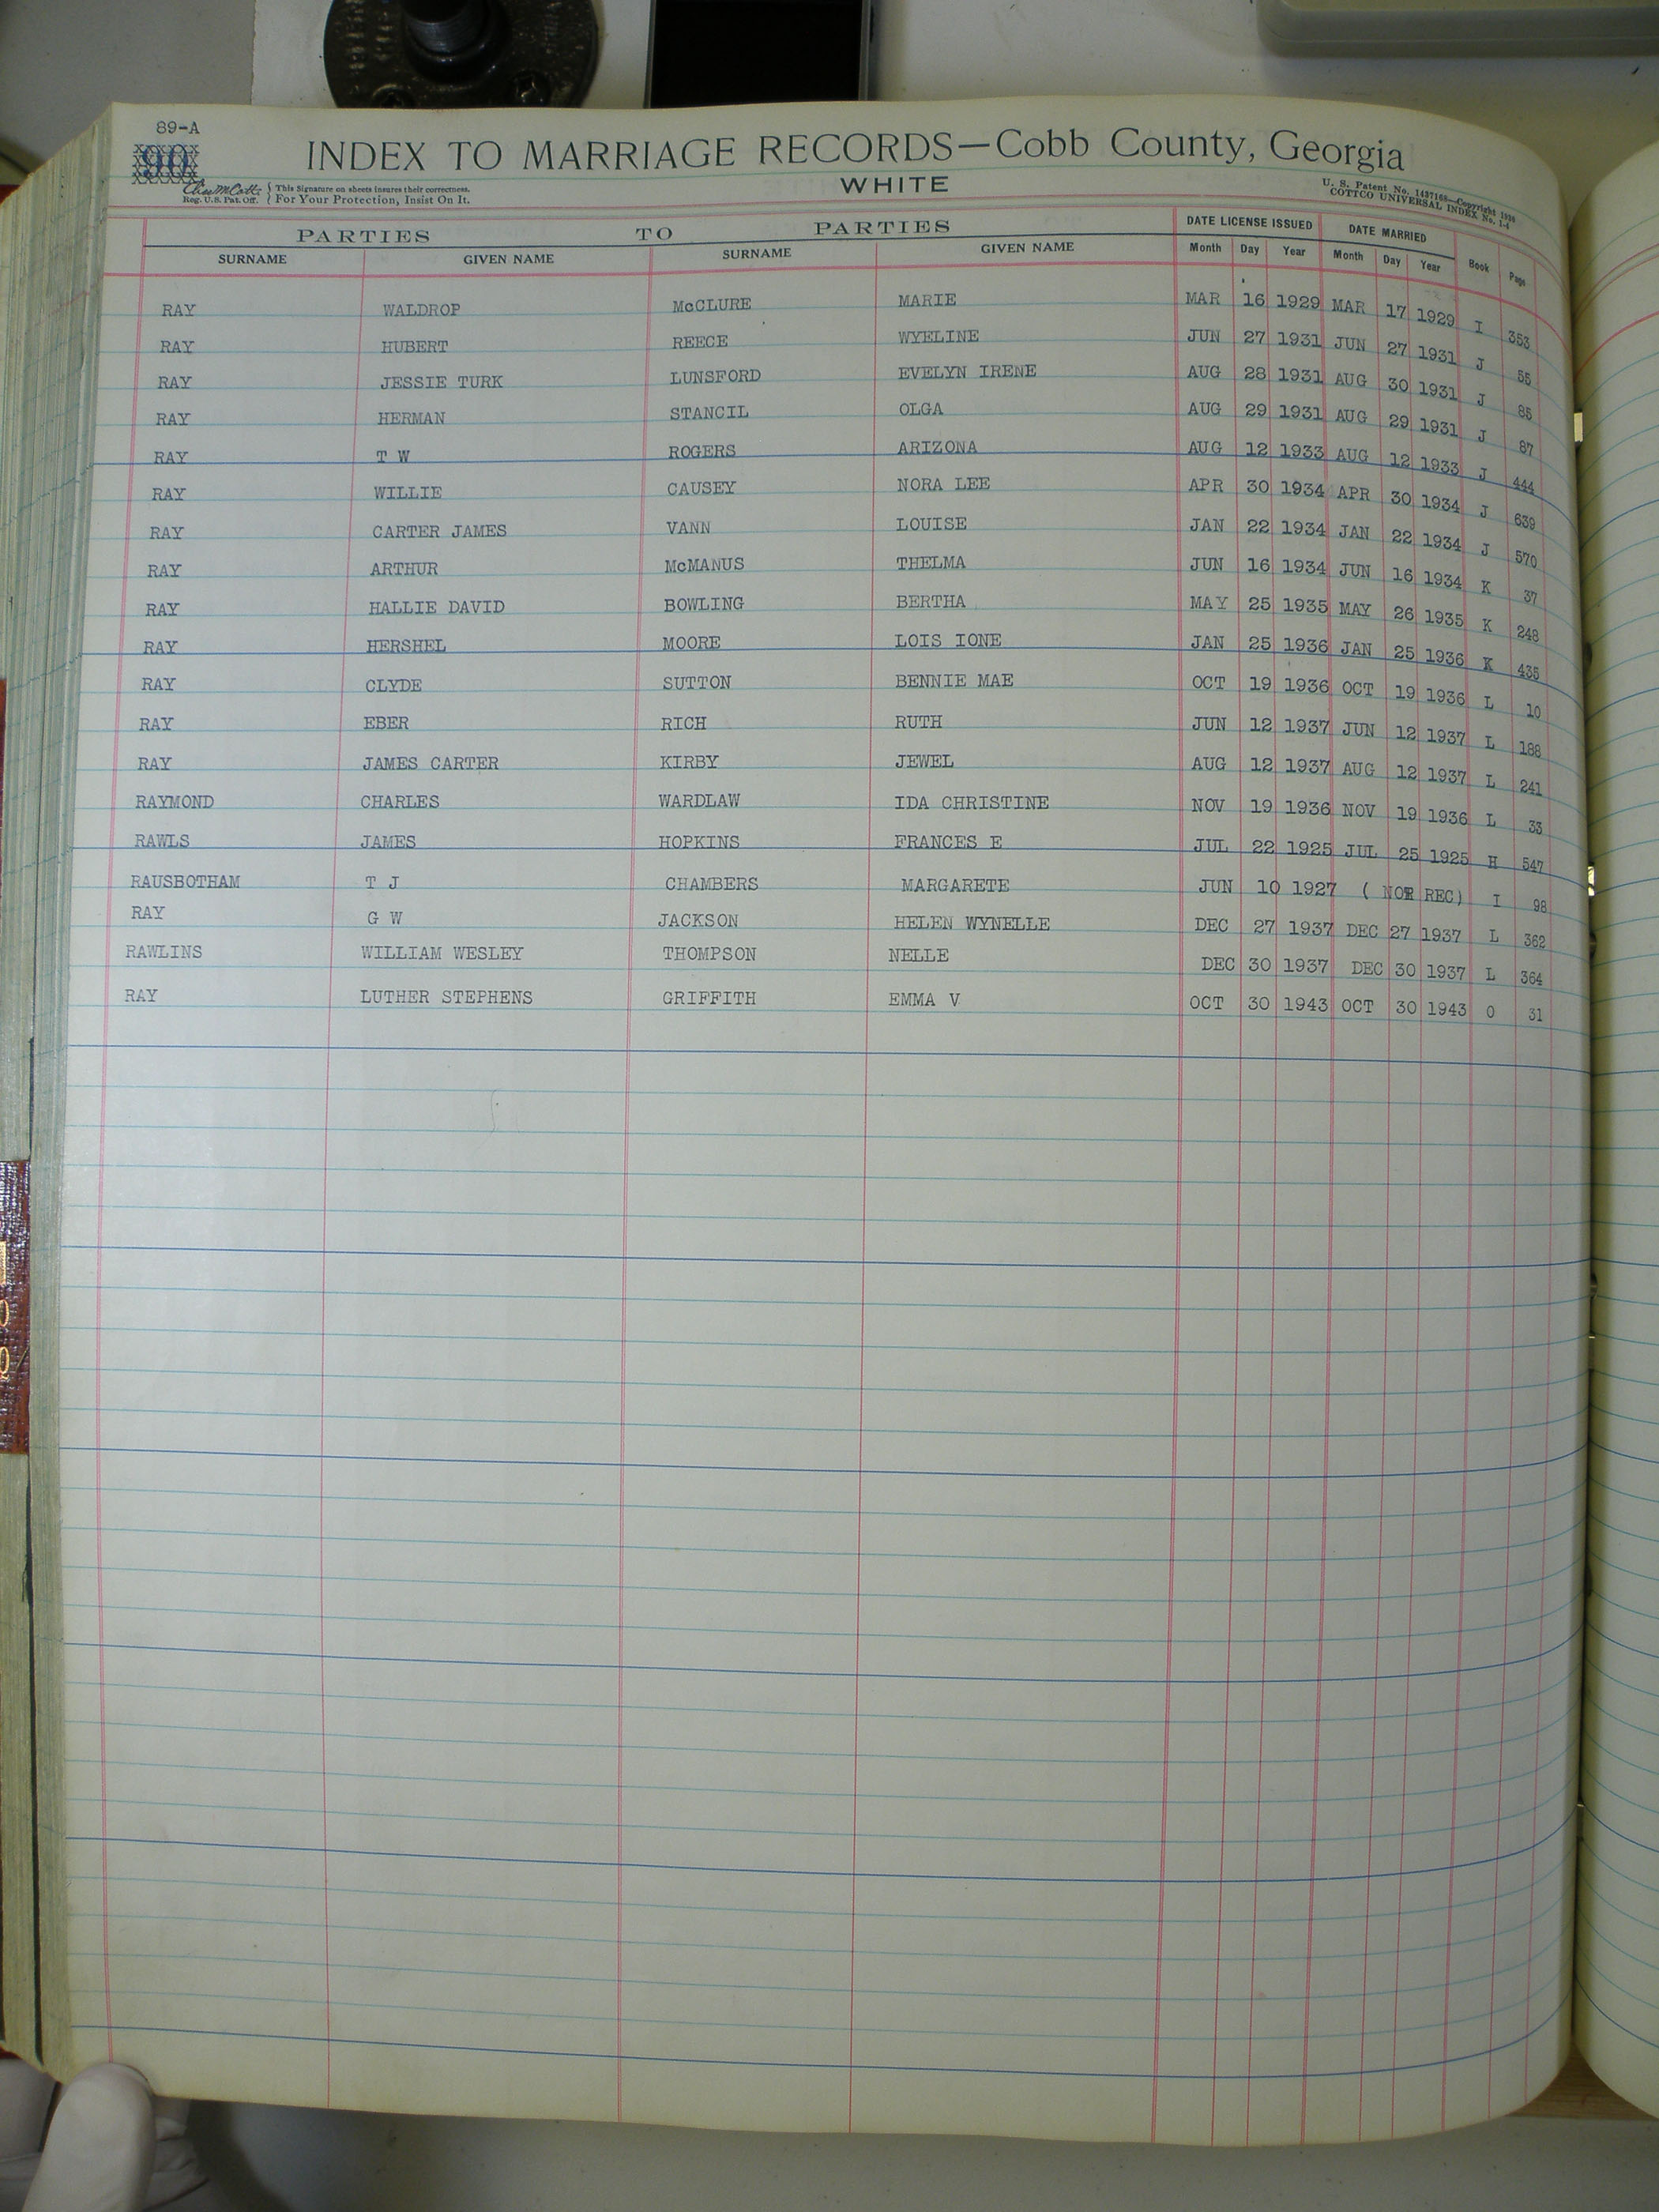 89-A
90
INDEX TO MARRIAGE RECORDS—Cobb County, Georgia
WHITE
This Signature on sheets insures their correctness.
Reg. U.S. Pat. Off. For Your Protection, Insist On It.
U. S. Patent No. 1437168—Copyright 1936
COTTCO UNIVERSAL INDEX No. 1-4
PARTIES TO PARTIES DATE LICENSE ISSUED DATE MARRIED
SURNAME GIVEN NAME SURNAME GIVEN NAME Month Day Year Month Day Year Book Page
RAY WALDROP McCLURE MARIE MAR 16 1929 MAR 17 1929 I 353
RAY HUBERT REECE WYELINE JUN 27 1931 JUN 27 1931 J 55
RAY JESSIE TURK LUNSFORD EVELYN IRENE AUG 28 1931 AUG 30 1931 J 85
RAY HERMAN STANCIL OLGA AUG 29 1931 AUG 29 1931 J 87
RAY T W ROGERS ARIZONA AUG 12 1933 AUG 12 1933 J 444
RAY WILLIE CAUSEY NORA LEE APR 30 1934 APR 30 1934 J 639
RAY CARTER JAMES VANN LOUISE JAN 22 1934 JAN 22 1934 J 570
RAY ARTHUR McMANUS THELMA JUN 16 1934 JUN 16 1934 K 37
RAY HALLIE DAVID BOWLING BERTHA MAY 25 1935 MAY 26 1935 K 248
RAY HERSHEL MOORE LOIS IONE JAN 25 1936 JAN 25 1936 K 435
RAY CLYDE SUTTON BENNIE MAE OCT 19 1936 OCT 19 1936 L 10
RAY EBER RICH RUTH JUN 12 1937 JUN 12 1937 L 188
RAY JAMES CARTER KIRBY JEWEL AUG 12 1937 AUG 12 1937 L 241
RAYMOND CHARLES WARDLAW IDA CHRISTINE NOV 19 1936 NOV 19 1936 L 33
RAWLS JAMES HOPKINS FRANCES E JUL 22 1925 JUL 25 1925 H 547
RAUSBOTHAM T J CHAMBERS MARGARETE JUN 10 1927 ( NOT REC) I 98
RAY G W JACKSON HELEN WYNELLE DEC 27 1937 DEC 27 1937 L 362
RAWLINS WILLIAM WESLEY THOMPSON NELLE DEC 30 1937 DEC 30 1937 L 364
RAY LUTHER STEPHENS GRIFFITH EMMA V OCT 30 1943 OCT 30 1943 O 31